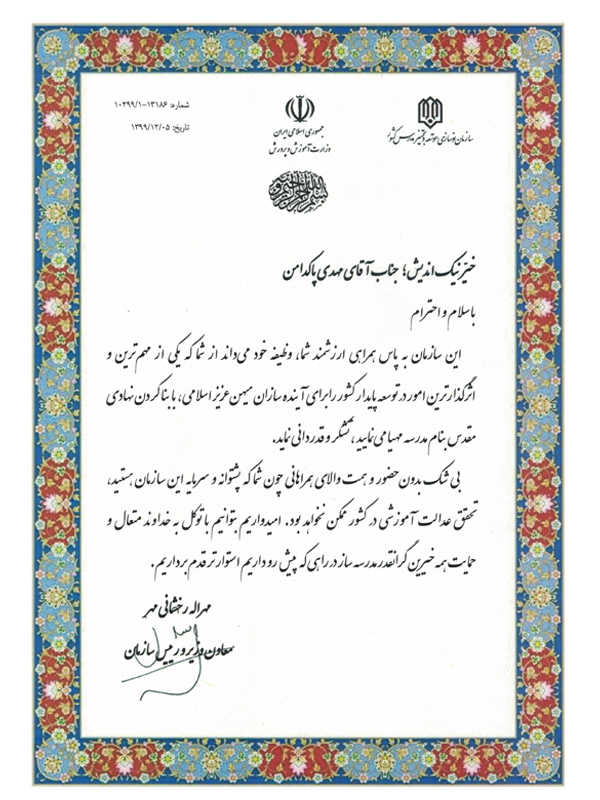 سازمان نوسازی، توسعه و تجهیز مدارس کشور
جمهوری اسلامی ایران
وزارت آموزش و پرورش
شماره: ۱۰۲۹۹/۱-۱۳۱۸۶
تاریخ: ۱۳۹۹/۱۲/۰۵
بسم الله الرحمن الرحیم
خیّر نیک اندیش؛ جناب آقای مهدی پاکدامن
با سلام و احترام
این سازمان به پاس همراهی ارزشمند شما، وظیفه خود می‌داند از شما که یکی از مهم‌ترین و
اثرگذارترین امور در توسعه پایدار کشور را برای آینده سازان میهن عزیز اسلامی، با بنا کردن نهادی
مقدس بنام مدرسه مهیا می نمایید، تشکر و قدردانی نماید.
بی شک بدون حضور و همت والای همراهانی چون شما که پشتوانه و سرمایه این سازمان هستید،
تحقق عدالت آموزشی در کشور ممکن نخواهد بود. امیدواریم بتوانیم با توکل به خداوند متعال و
حمایت همه خیرین گرانقدر مدرسه ساز در راهی که پیش رو داریم استوارتر قدم برداریم.
مهراله رخشانی مهر
معاون وزیر و رییس سازمان